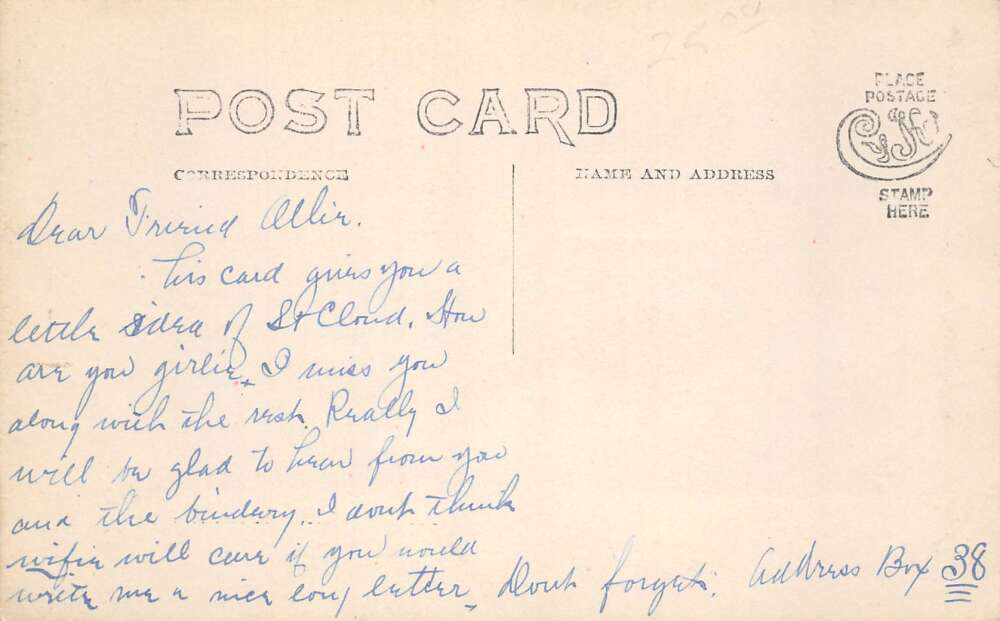 25 00
POST CARD
PLACE
POSTAGE
STAMP
HERE
CORRESPONDENCE
NAME AND ADDRESS
Dear Friend Allie.
This card gives you a
little idea of St Cloud. How
are you girlie, I miss you
along with the rest. Really I
will be glad to hear from you
and the bindery. I dont think
wifie will care if you would
write me a nice long letter, Dont forget. Address Box 38